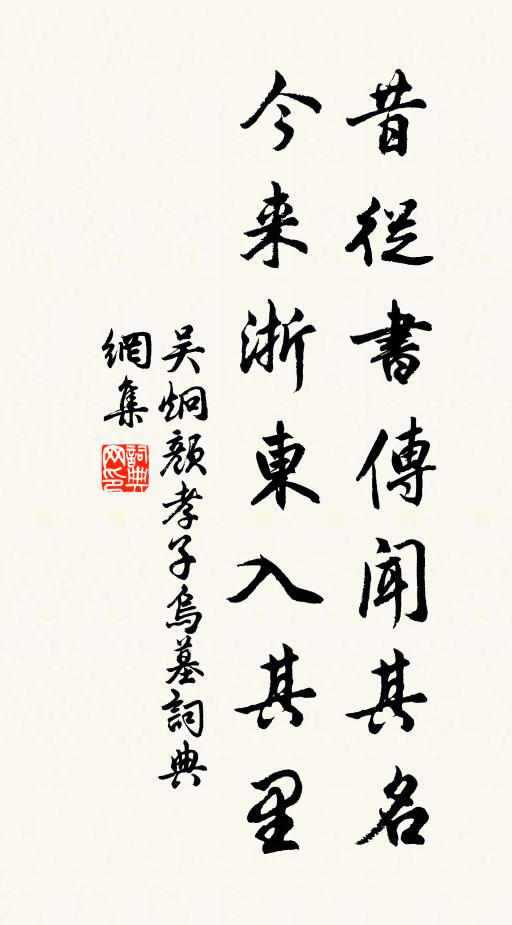 昔從書傳聞其名
今来浙東入其里
吳炯顏孝子烏墓詞典
網集
詞典網印